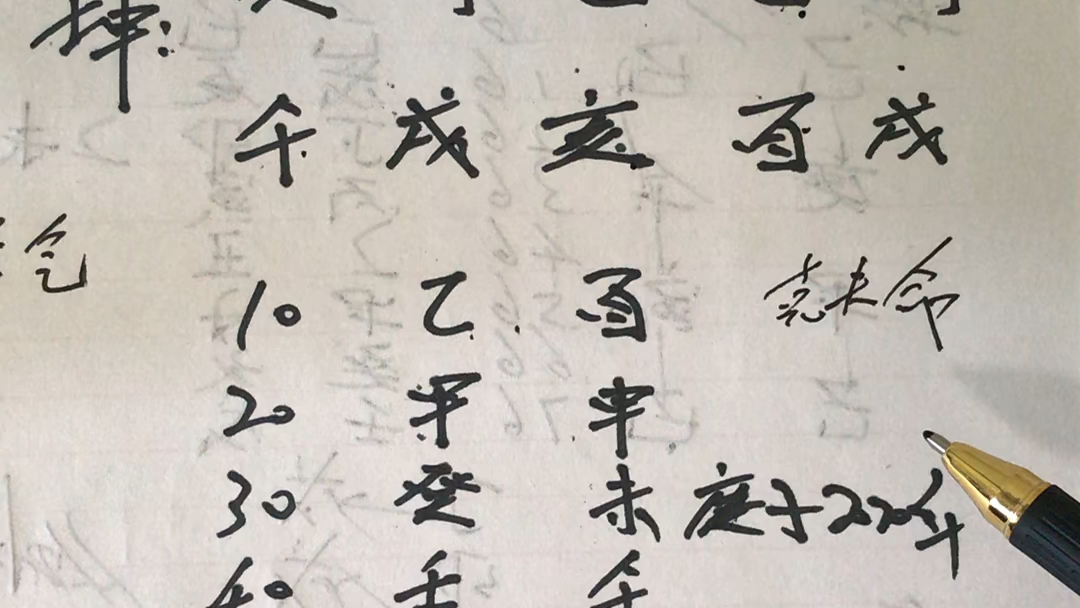 坤:
午 戌 亥 酉 戌
气
10 乙 酉 克夫命
20 甲 申
30 癸 未 庚子2020年
40 壬 午